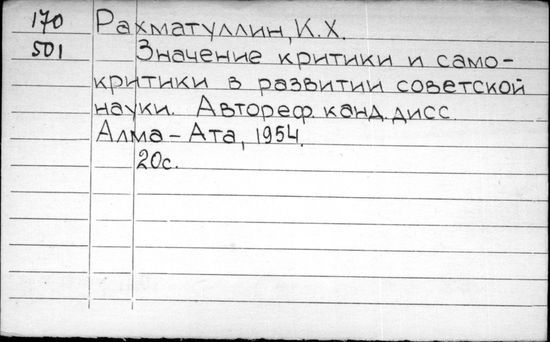 170 Рахматуллин, К.Х.
501 Значение критики и само-
критики в развитии советской
науки. Автореф. канд. дисс.
Алма-Ата, 1954.
20с.